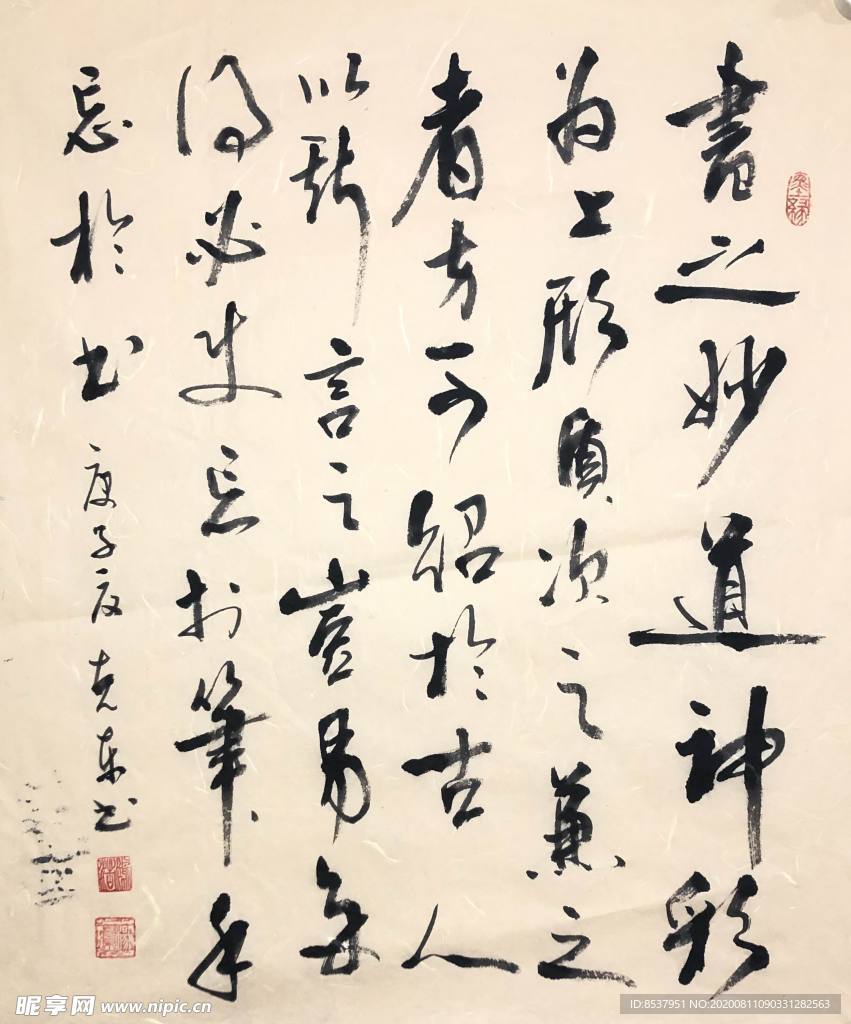 書之妙道神彩
為上形質次之兼之
者方可紹於古人
以斯言之豈易多
得必使忘於筆手
忘於书
庚子夏克東书
昵享网 www.nipic.cn
ID:8537951 NO:20200811090331282563